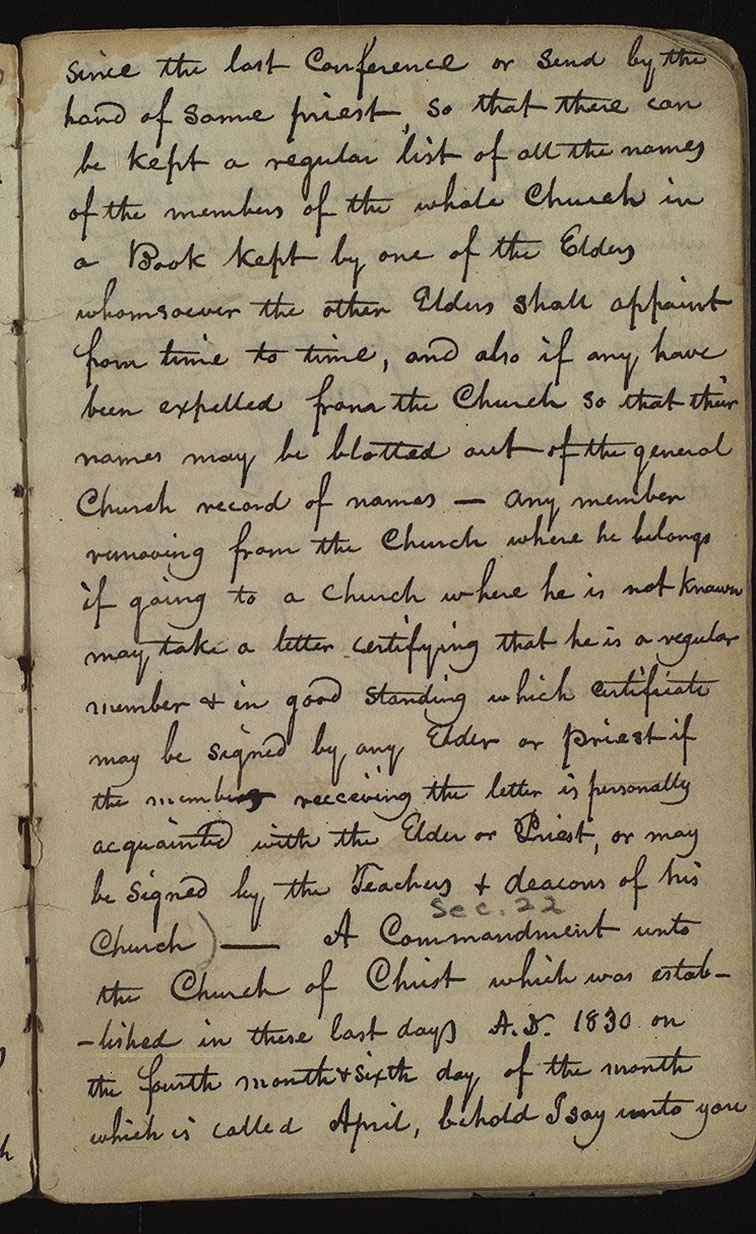 since the last Conference or send by the
hand of some priest, so that there can
be kept a regular list of all the names
of the members of the whole Church in
a Book kept by one of the Elders
whomsoever the other Elders shall appoint
from time to time, and also if any have
been expelled from the Church so that their
names may be blotted out of the general
Church record of names — any member
removing from the Church where he belongs
if going to a church where he is not known
may take a letter certifying that he is a regular
member & in good standing which certificate
may be signed by any Elder or priest if
the member receiving the letter is personally
acquainted with the Elder or Priest, or may
be signed by the Teachers & deacons of his
Sec. 22
Church) — A Commandment unto
the Church of Christ which was estab-
-lished in these last days A.D. 1830 on
the fourth month & sixth day of the month
which is called April, behold I say unto you